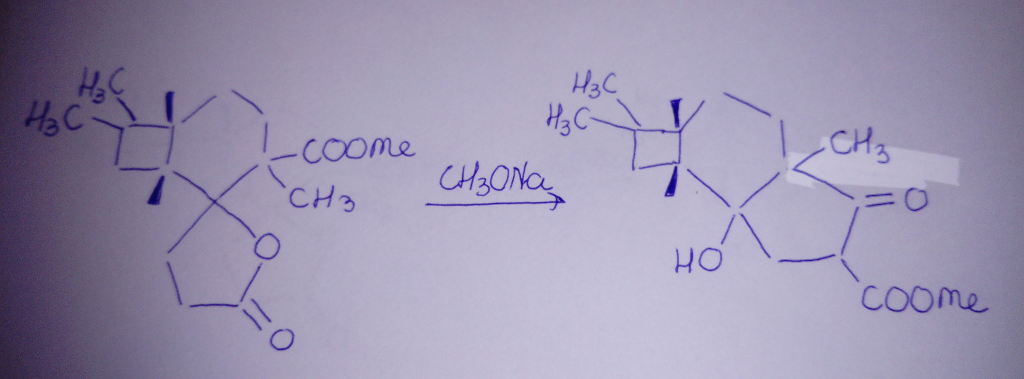 H3C
H3C
COOMe
CH3
O
O
CH3ONa
H3C
H3C
CH3
O
HO
COOMe